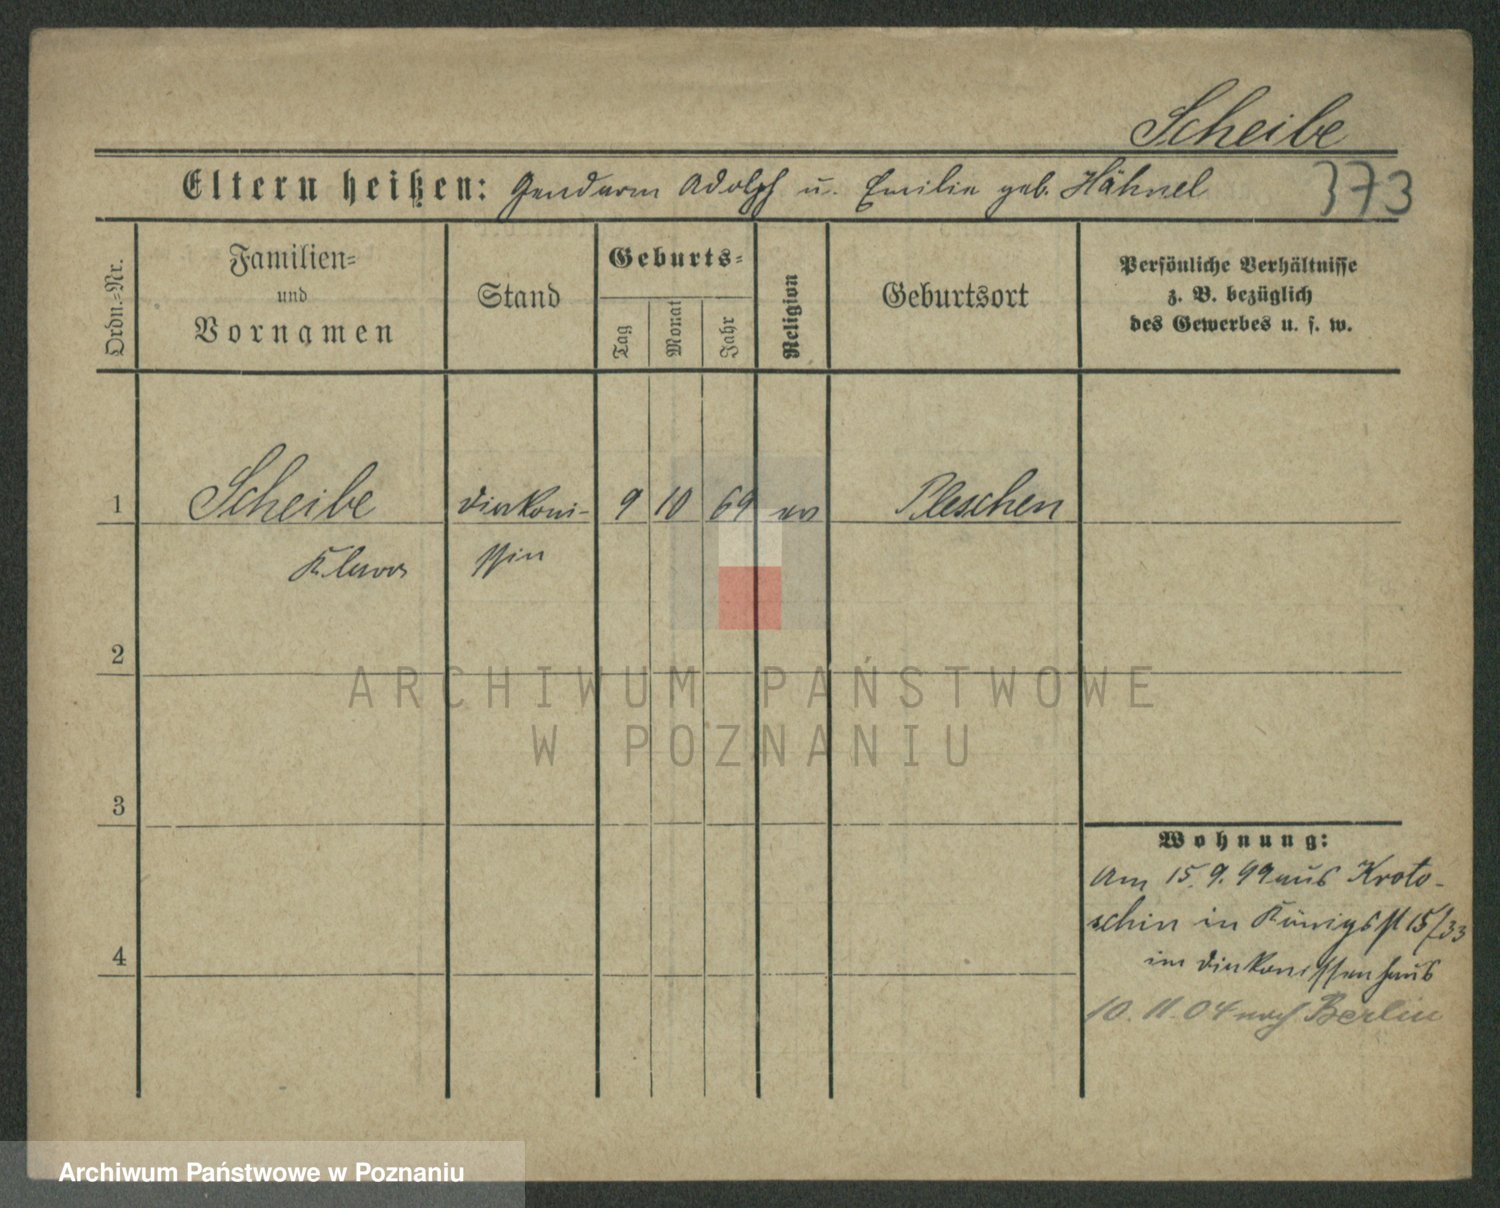 Scheibe
Eltern heißen: Gendarm Adolph u. Emilie geb. Hähnel 373
Ordn.-Nr.
Familien-
und
Vornamen
Stand
Geburts-
Tag
Monat
Jahr
Religion
Geburtsort
Persönliche Verhältnisse
z. B. bezüglich
des Gewerbes u. s. w.
1 Scheibe Diakoni- 9 10 69 ev Pleschen
Klara ssin
2
3
4
Wohnung:
Am 15.9.99 aus Kroto-
schin in Königsstr 15/33
im Diakonissenhaus
10.11.04 nach Berlin
ARCHIWUM PAŃSTWOWE
W POZNANIU
Archiwum Państwowe w Poznaniu